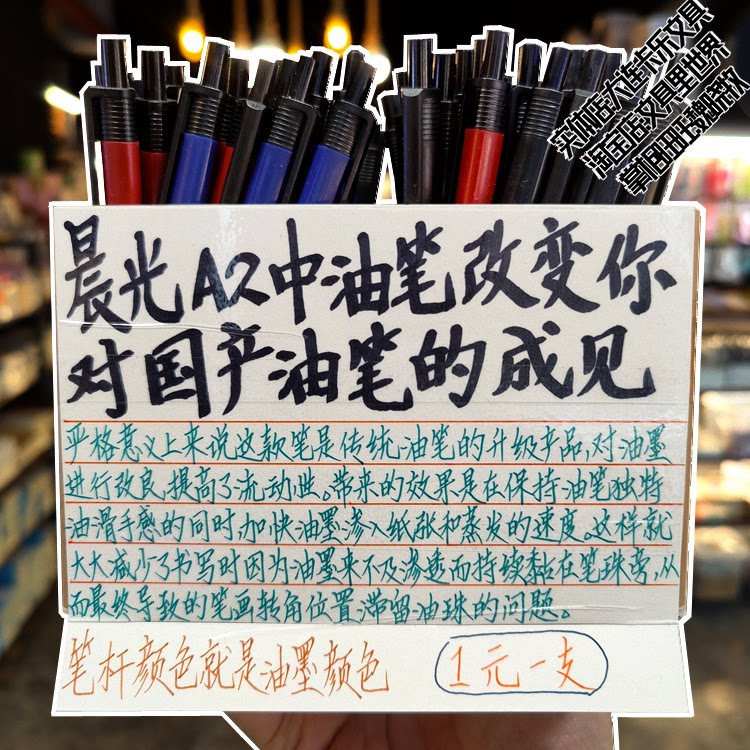 实体店大连卡乐文具
淘宝店文具里世界
韩田田正翻肆放
晨光A2中油笔改变你
对国产油笔的成见
严格意义上来说这款笔是传统油笔的升级产品,对油墨
进行改良,提高了流动性。带来的效果是在保持油笔独特
油滑手感的同时加快油墨渗入纸张和蒸发的速度。这样就
大大减少了书写时因为油墨来不及渗透而持续黏在笔珠旁,从
而最终导致的笔画转角位置滞留油珠的问题。
笔杆颜色就是油墨颜色
1元一支